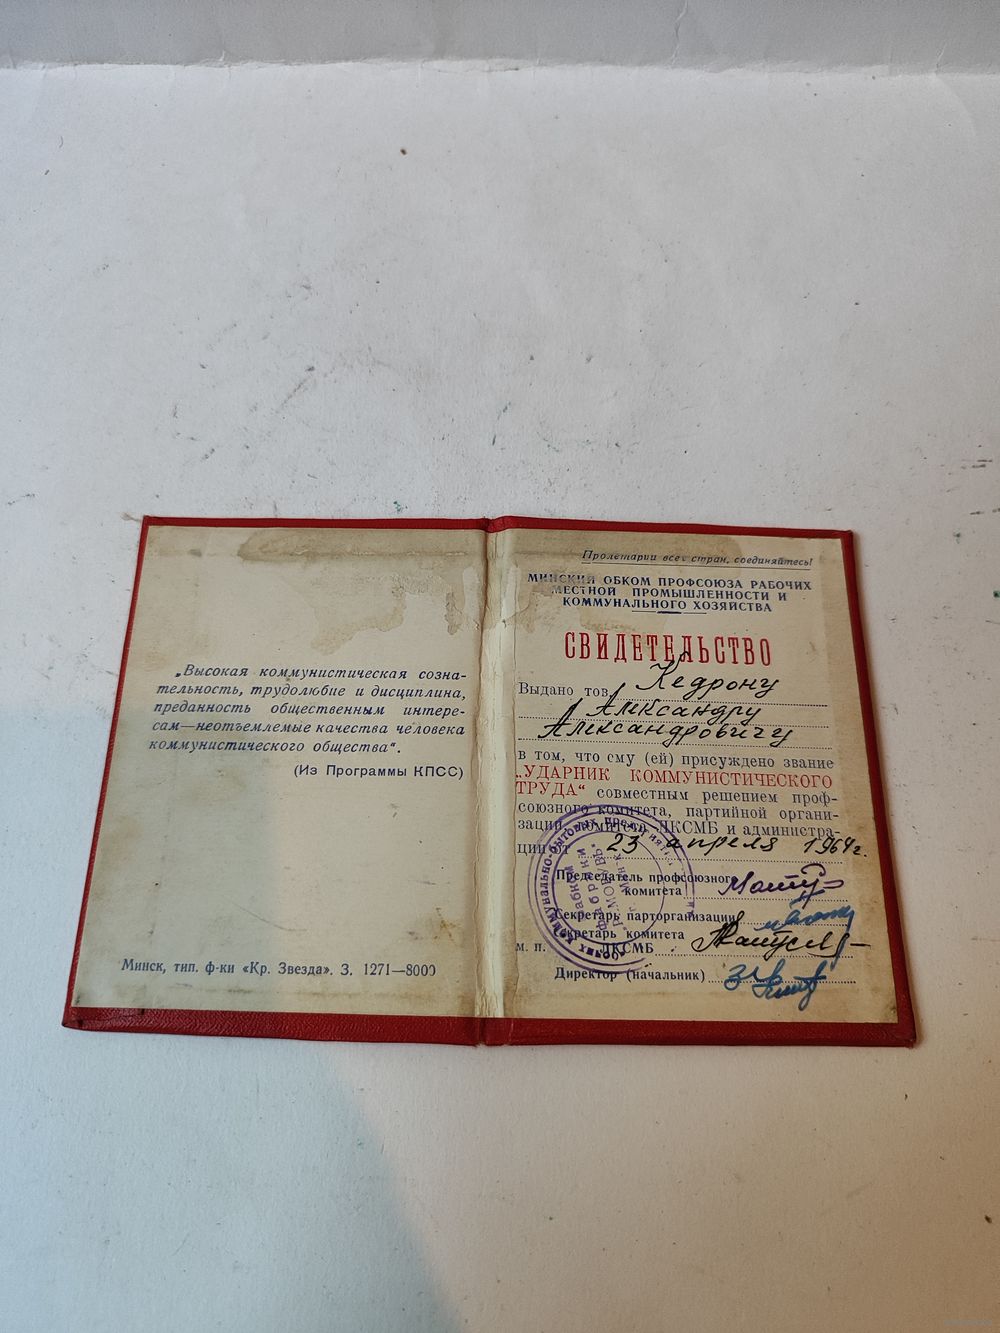 „Высокая коммунистическая созна-
тельность, трудолюбие и дисциплина,
преданность общественным интере-
сам—неотъемлемые качества человека
коммунистического общества“.
(Из Программы КПСС)
Минск, тип. ф-ки «Кр. Звезда». З. 1271—8000
Пролетарии всех стран, соединяйтесь!
МИНСКИЙ ОБКОМ ПРОФСОЮЗА РАБОЧИХ
МЕСТНОЙ ПРОМЫШЛЕННОСТИ И
КОММУНАЛЬНОГО ХОЗЯЙСТВА
СВИДЕТЕЛЬСТВО
Выдано тов. Кедрону
Александру
Александровичу
в том, что ему (ей) присуждено звание
„УДАРНИК КОММУНИСТИЧЕСКОГО
ТРУДА“ совместным решением проф-
союзного комитета, партийной органи-
зации, комитета ЛКСМБ и администра-
ции от 23 апреля 1964г.
Председатель профсоюзного
комитета
Секретарь парторганизации
Секретарь комитета
м. п. ЛКСМБ
Директор (начальник)
коммунально-бытовых предприятий
Фабком
фабрики
г. Минск